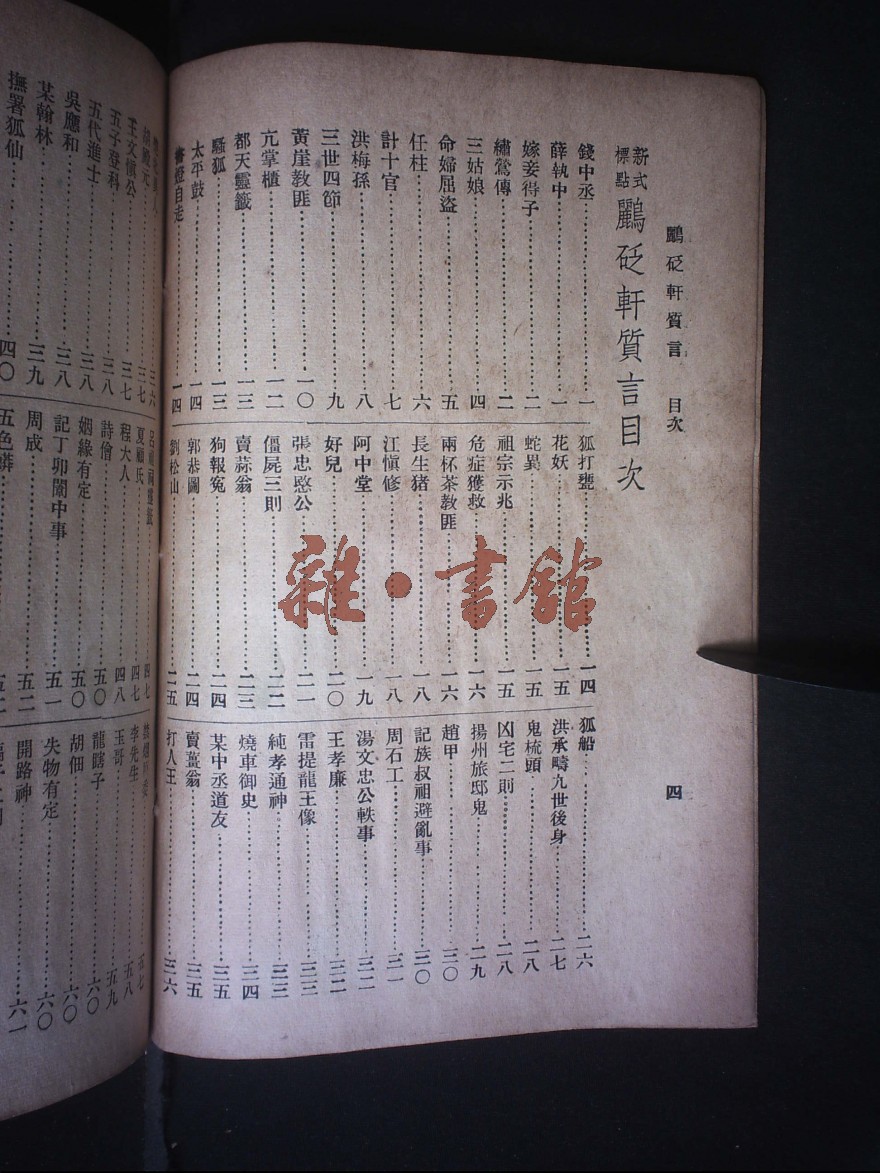 鸝砭軒質言 目次 四
新式標點 鸝砭軒質言目次
錢中丞 一
薛執中 一
嫁妾得子 二
繡鴛傳 二
三姑娘 四
命婦屈盜 五
任柱 六
計十官 七
洪梅孫 八
三世四節 九
黃崖教匪 一〇
亢掌櫃 一二
都天靈籤 一三
騷狐 一三
太平鼓 一四
書燈自走 一四
狐打甕 一四
花妖 一五
蛇異 一五
祖宗示兆 一五
危症獲救 一六
兩杯茶教匪 一六
長生猪 一八
江愼修 一八
阿中堂 一九
好兒 二〇
張忠愍公 二一
僵屍三則 二二
賣蒜翁 二三
狗報寃 二四
郭恭圖 二四
劉松山 二五
狐船 二六
洪承疇九世後身 二七
鬼梳頭 二八
凶宅二則 二八
揚州旅邸鬼 二九
趙甲 三〇
記族叔祖避亂事 三〇
周石工 三一
湯文忠公軼事 三二
王孝廉 三二
雷提龍王像 三三
純孝通神 三三
燒車御史 三四
某中丞道友 三五
賣薑翁 三五
打人王 三六
三六
胡殿元 三七
王文愼公 三七
五子登科 三八
五代進士 三八
吳應和 三八
某翰林 三九
撫署狐仙 四〇
四七
夏顧氏 四七
程大人 四八
詩僧 五〇
姻緣有定 五〇
記丁卯闈中事 五一
周成 五二
五色蟒 五二
五七
李先生 五八
玉哥 五九
龍瞎子 六〇
胡佃 六〇
失物有定 六〇
開路神 六一
雜·書館